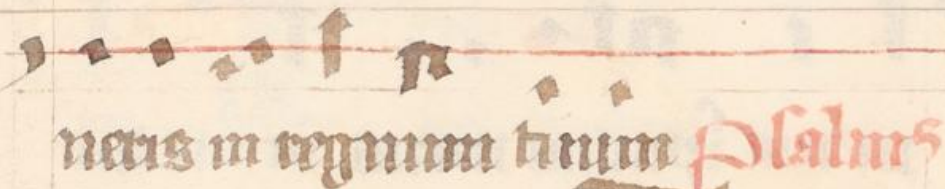 neris in regnum tuum Psalmus